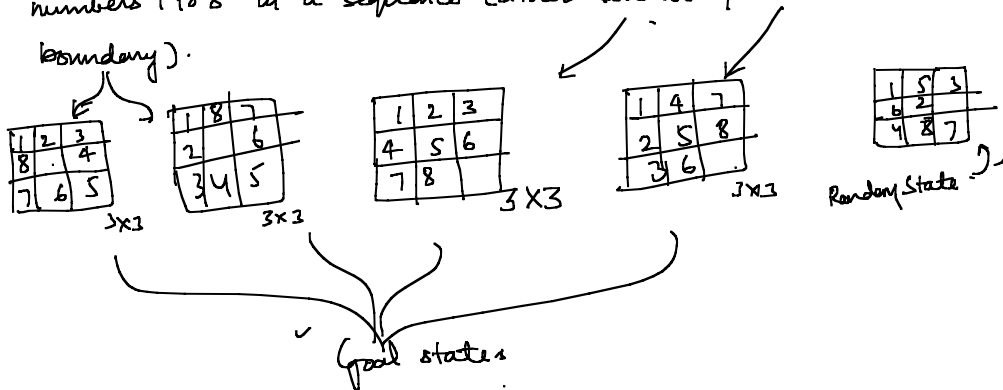 numbers 1 to 8 in a sequence
boundary).
1 2 3
8 . 4
7 6 5
3x3
1 8 7
2 6
3 4 5
3x3
1 2 3
4 5 6
7 8
3X3
1 4 7
2 5 8
3 6 .
3x3
1 5 3
6 2
4 8 7
Random State
Goal states